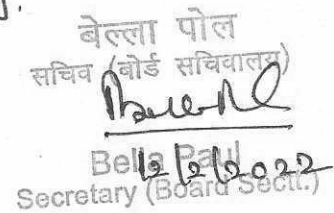 बेल्ला पोल
सचिव (बोर्ड सचिवालय)
Bella Paul
12/2/2022
Secretary (Board Sectt.)